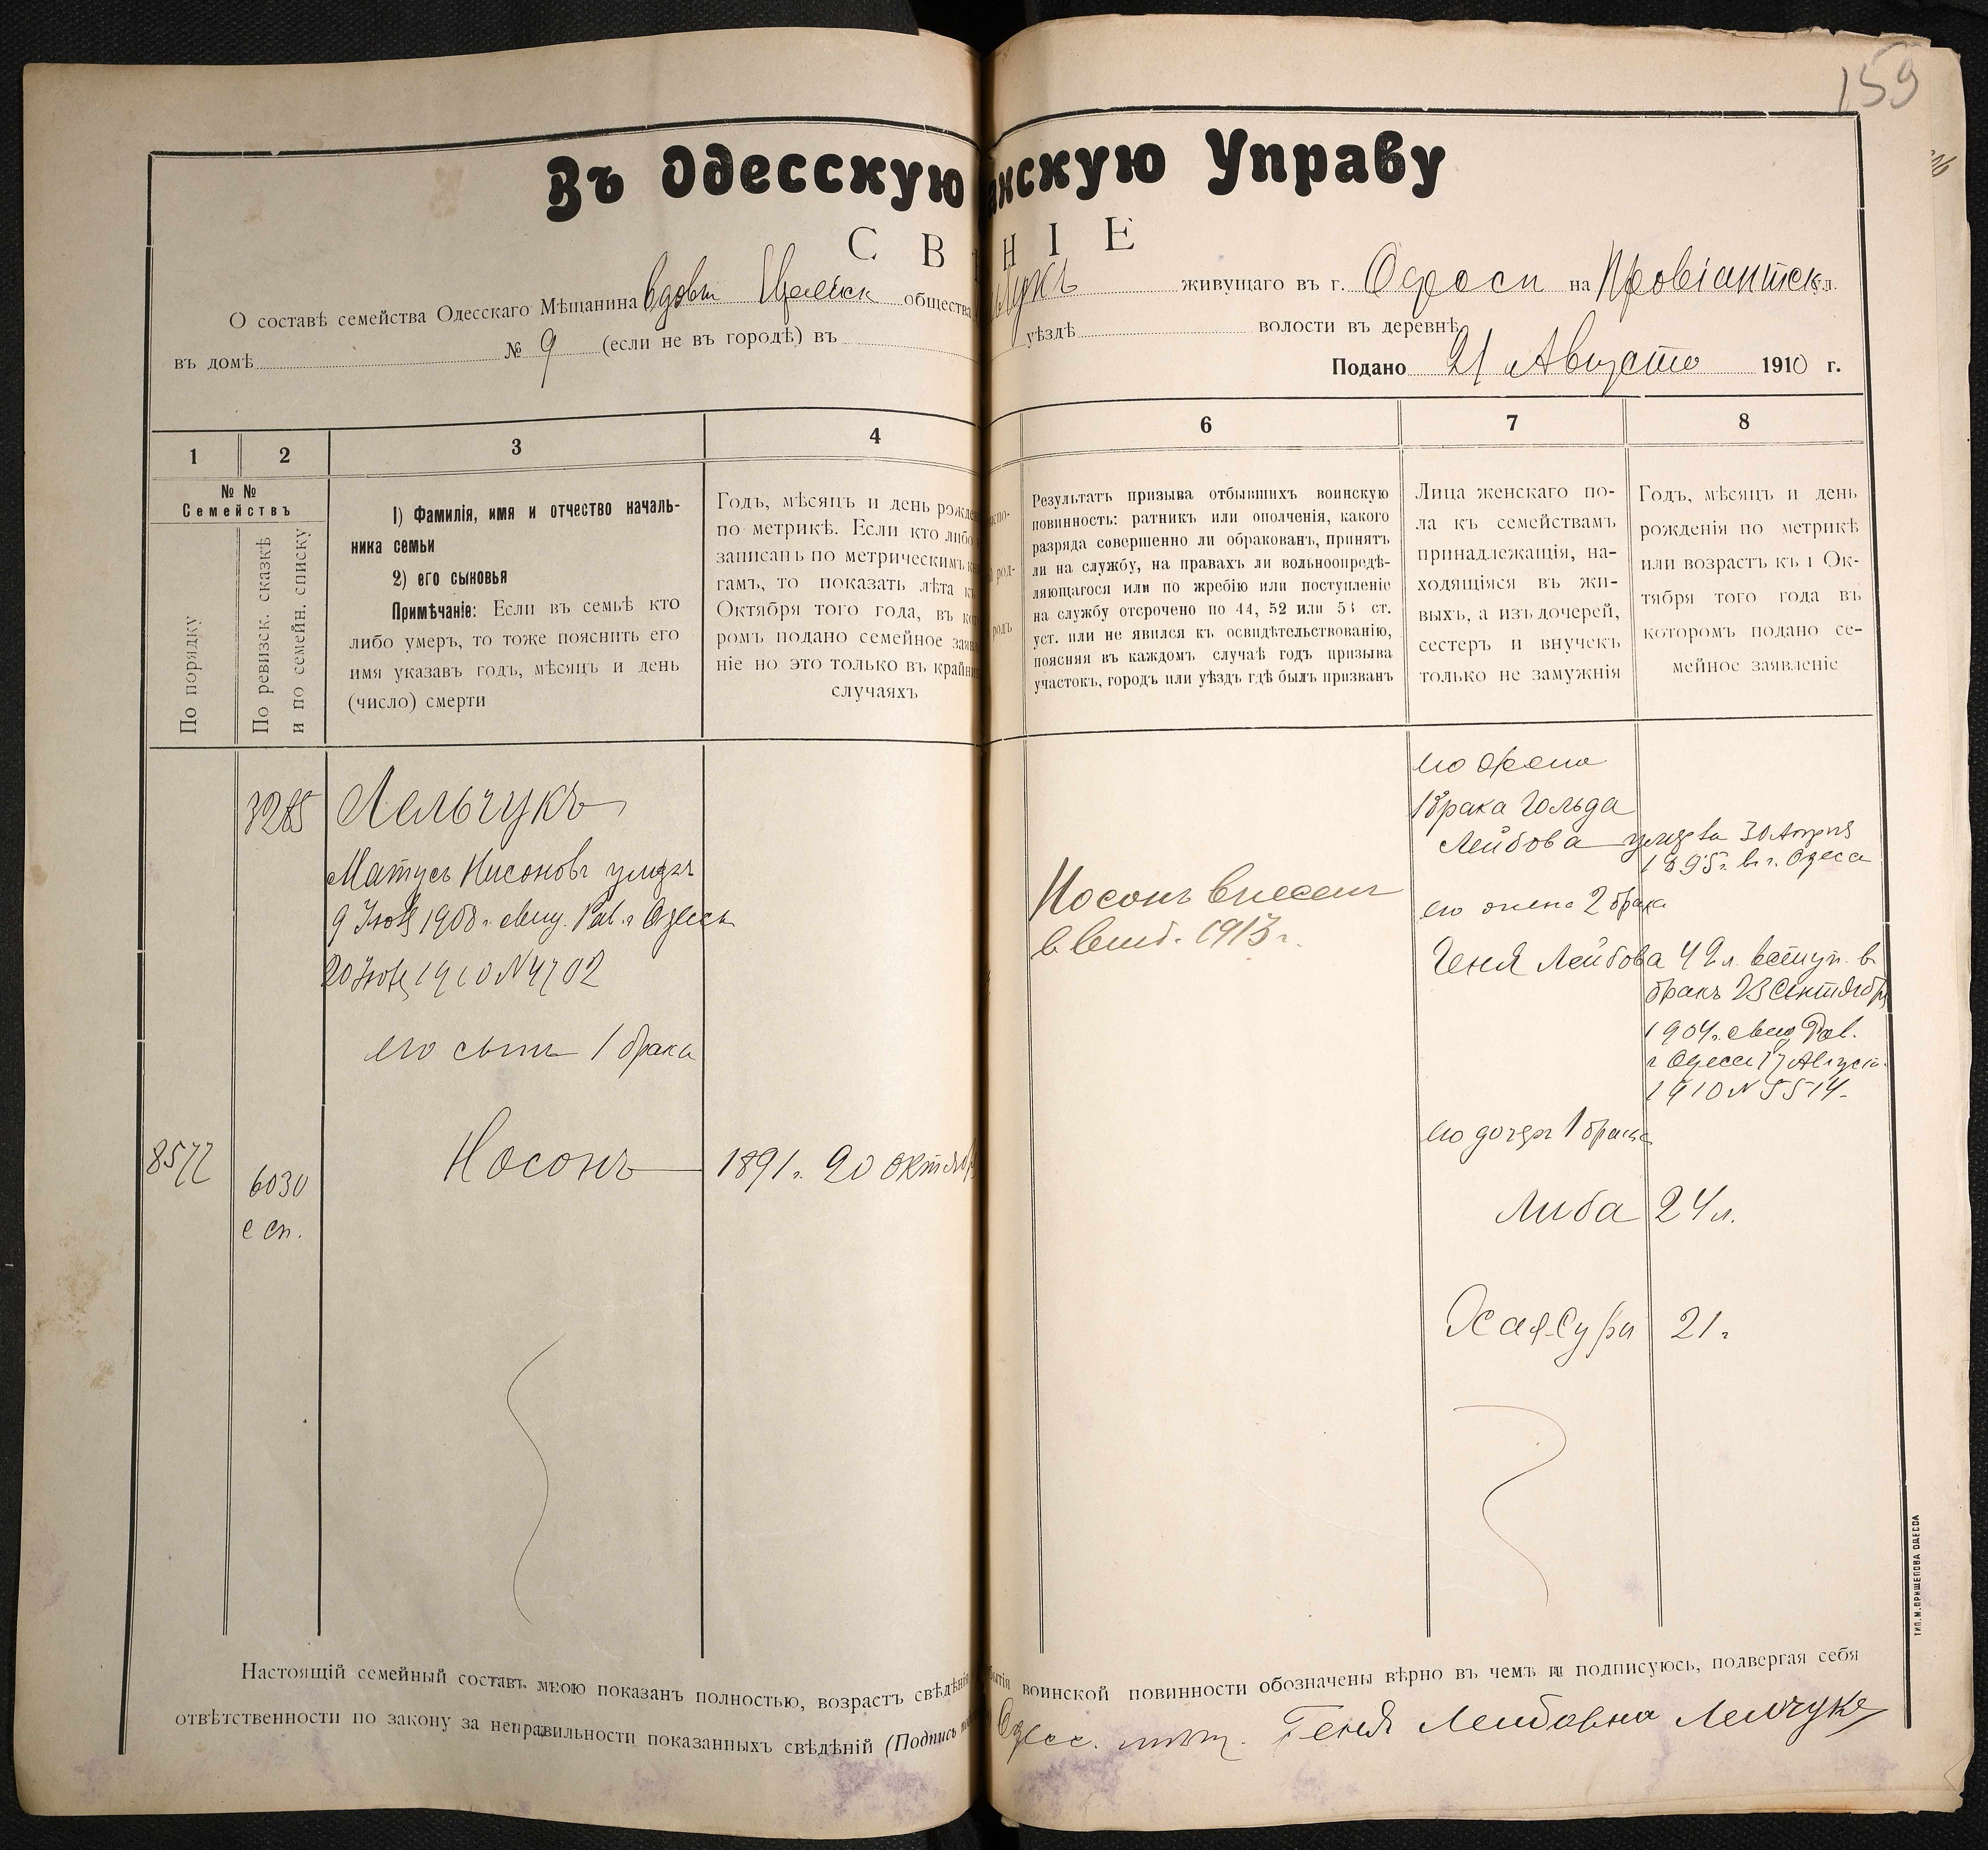 159
Въ Одесскую анскую Управу
С В НІЕ
О составѣ семейства Одесскаго Мѣщанина вдовы общества живущаго въ г. Одесси на Провіантск ул.
въ домѣ № 9 (если не въ городѣ) въ уѣздѣ волости въ деревнѣ
Подано 21 Августа 1910 г.
1 2 3 4 6 7 8
№ №
Семействъ
По порядку
По ревизск. сказкѣ
и по семейн. списку
1) Фамилія, имя и отчество началь-
ника семьи
2) его сыновья
Примѣчаніе: Если въ семьѣ кто
либо умеръ, то тоже пояснить его
имя указавъ годъ, мѣсяцъ и день
(число) смерти
Годъ, мѣсяцъ и день рожде
по метрикѣ. Если кто либо
записанъ по метрическимъ
гамъ, то показать лѣта къ
Октября того года, въ ко
ромъ подано семейное зая
ніе но это только въ крайн
случаяхъ
Результатъ призыва отбывшихъ воинскую
повинность: ратникъ или ополченія, какого
разряда совершенно ли обракованъ, принятъ
ли на службу, на правахъ ли вольноопредѣ-
ляющагося или по жребію или поступленіе
на службу отсрочено по 44, 52 или 53 ст.
уст. или не явился къ освидѣтельствованію,
поясняя въ каждомъ случаѣ годъ призыва
участокъ, городъ или уѣздъ гдѣ былъ призванъ
Лица женскаго по-
ла къ семействамъ
принадлежащія, на-
ходящіяся въ жи-
выхъ, а изъ дочерей,
сестеръ и внучекъ
только не замужнія
Годъ, мѣсяцъ и день
рожденія по метрикѣ
или возрастъ къ 1 Ок-
тября того года въ
которомъ подано се-
мейное заявленіе
3285
Лельчукъ
Матусъ Нисоновъ умеръ
9 1908 г. свид. Рав. г. Одессы
20 1910 № 4702
его сынъ 1 брака
8577
6030
с сп.
Носонъ
1891 г. 20 октяб
Носонъ внесенъ
в 1913 г.
его жена
1 брака Гольда
Лейбова умерла 30 Апреля
1895 г. в г. Одесса
его жена 2 брака
Геня Лейбова 42 л. вступ. в
бракъ 23 Сентября
1904 г. свид Рав.
г Одессы 17 Август.
1910 № 5514.
его дочери 1 брака
Либа 24 л.
Хая-Сура 21 г
Настоящій семейный составъ мною показанъ полностью, возрастъ свѣдѣнія воинской повинности обозначены вѣрно въ чемъ и подписуюсь, подвергая себя
отвѣтственности по закону за неправильности показанныхъ свѣдѣній (Подпись Одесс. мѣщ. Геня Лейбовна Лельчукъ
ТИП. М. ПРИЩЕПОВА ОДЕССА